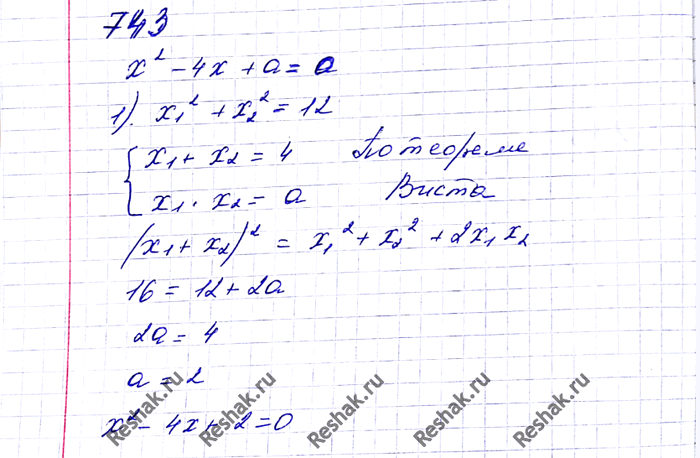 743
x² - 4x + a = a
1). x₁² + x₂² = 12
{ x₁ + x₂ = 4 По теореме
x₁ · x₂ = a Виета
(x₁ + x₂)² = x₁² + x₂² + 2x₁x₂
16 = 12 + 2a
2a = 4
a = 2
x² - 4x + 2 = 0
Reshak.ru Reshak.ru Reshak.ru Reshak.ru Reshak.ru